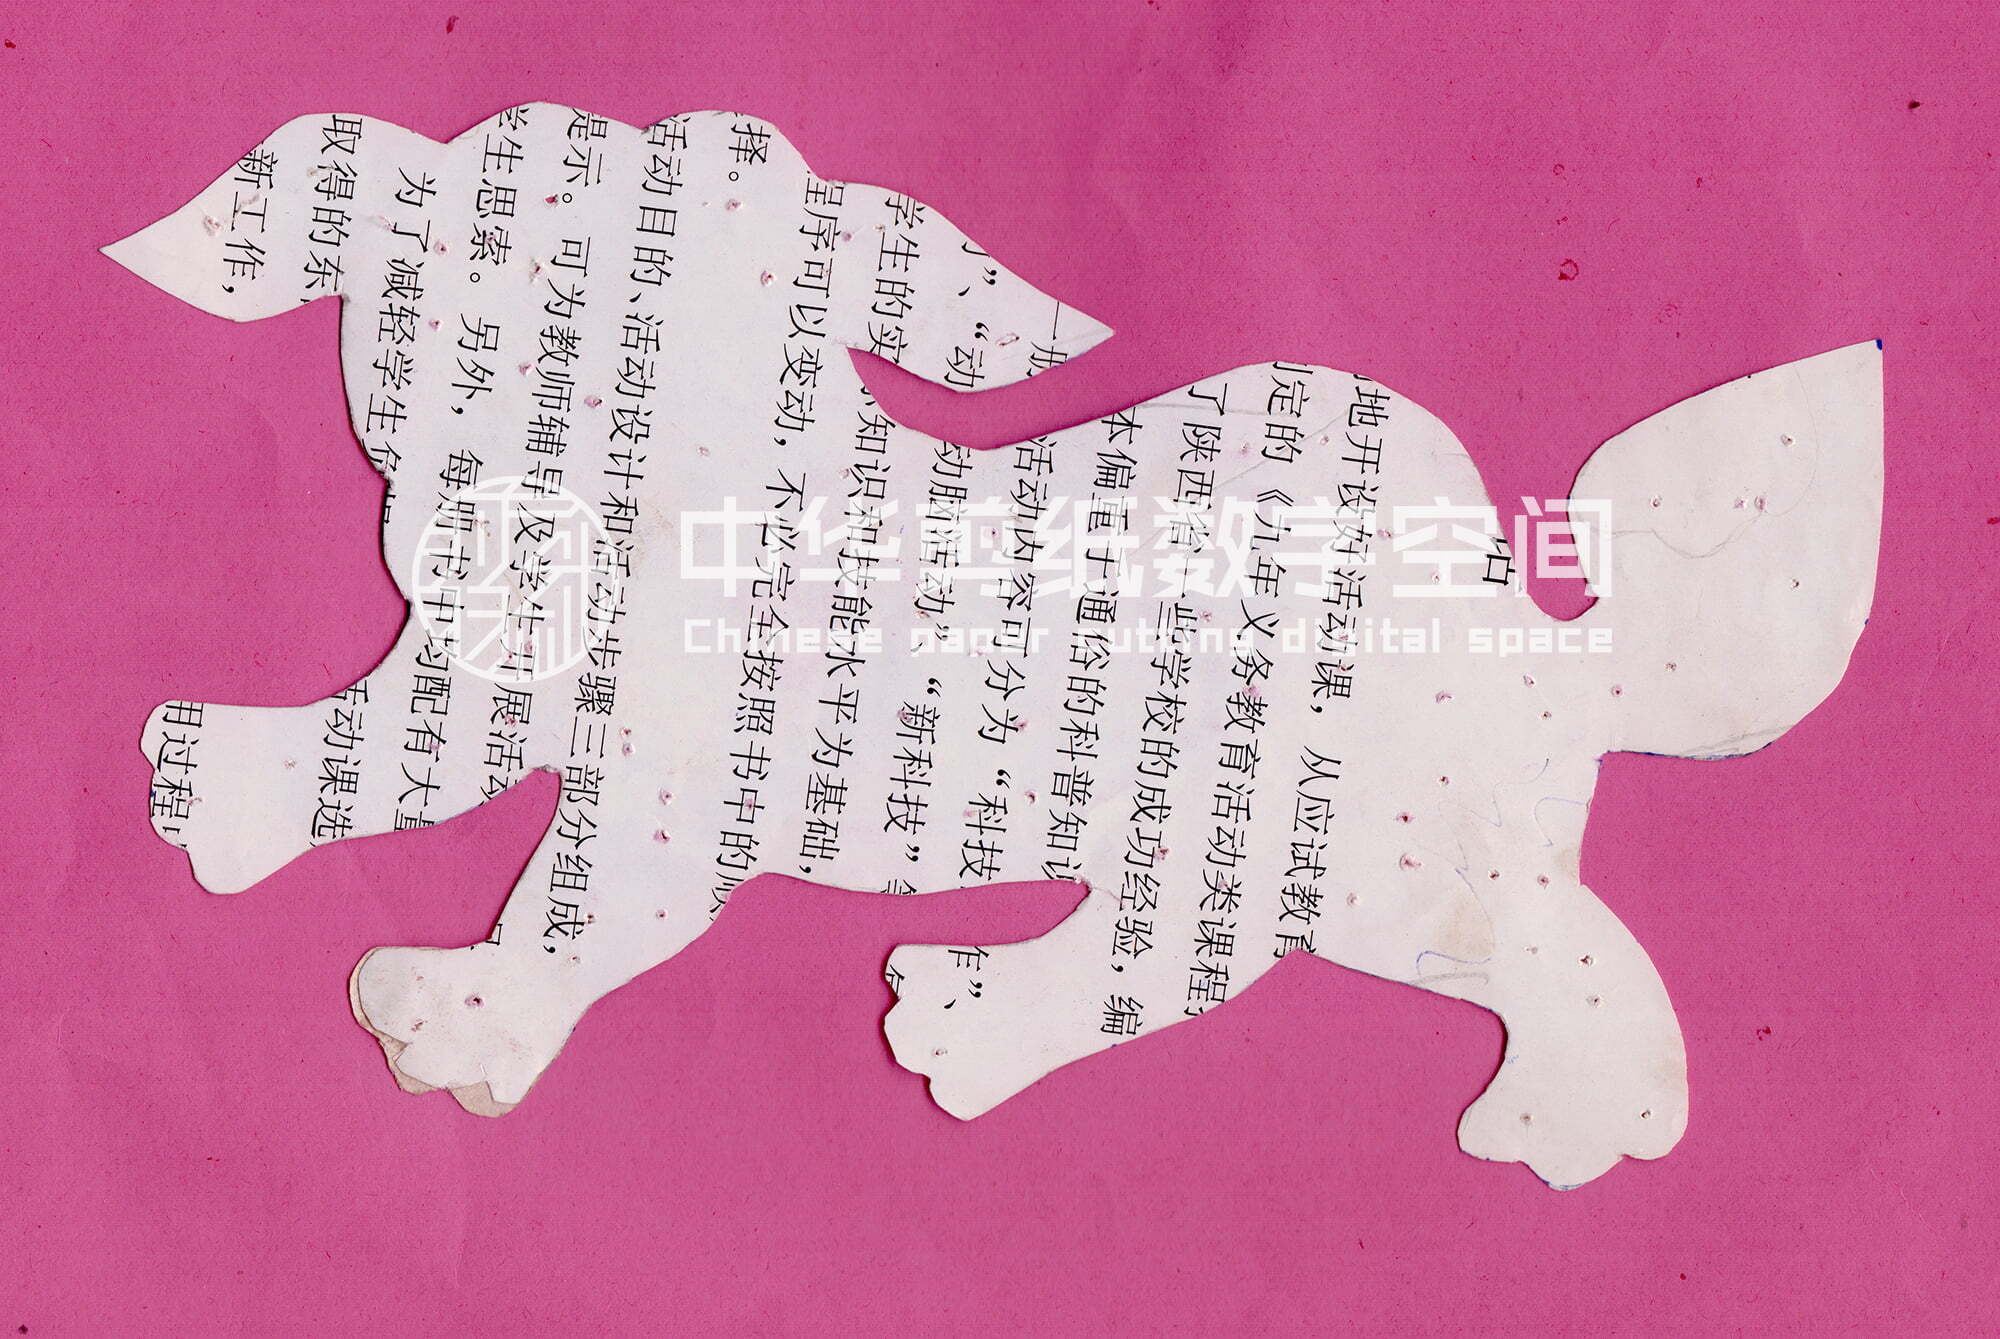 地开设好活动课，从应试教育
定的《九年义务教育活动类课程
了陕西省一些学校的成功经验，编
本偏重于通俗的科普知识
一册 活动内容可分为“科技 作”、
”、“动 动脑活动”、“新科技”
学生的实 知识和技能水平为基础，
程序可以变动，不必完全按照书中的顺
择。
活动目的、活动设计和活动步骤三部分组成，
是示。可为教师辅导及学生开展活动
学生思索。另外，每册书中均配有大量
为了减轻学生 活动课选
取得的东
新工作， 用过程
中华剪纸数字空间
Chinese paper cutting digital space